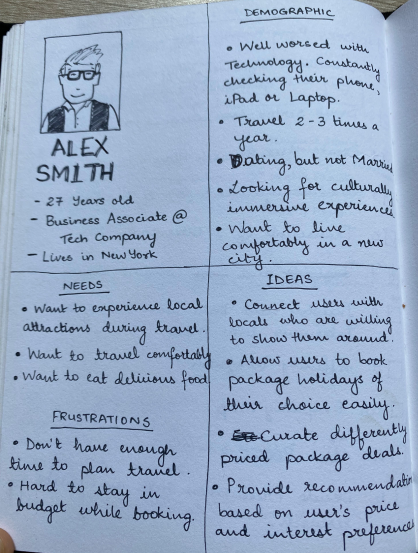 ALEX
SMITH
- 27 Years old
- Business Associate @
Tech Company
- Lives in New York
DEMOGRAPHIC
• Well worsed with
Technology. Constantly
checking their phone,
iPad or Laptop.
• Travel 2-3 times a
year.
• Dating, but not Married
• Looking for culturally
immersive experiences
• Want to live
comfortably in a new
city.
NEEDS
• Want to experience local
attractions during travel.
• Want to travel comfortably
• Want to eat delicious food
FRUSTRATIONS
• Don't have enough
time to plan travel.
• Hard to stay in
budget while booking.
IDEAS
• Connect users with
locals who are willing
to show them around.
• Allow users to book
package holidays of
their choice easily.
• Curate differently
priced package deals.
• Provide recommendation
based on user's price
and interest preferences